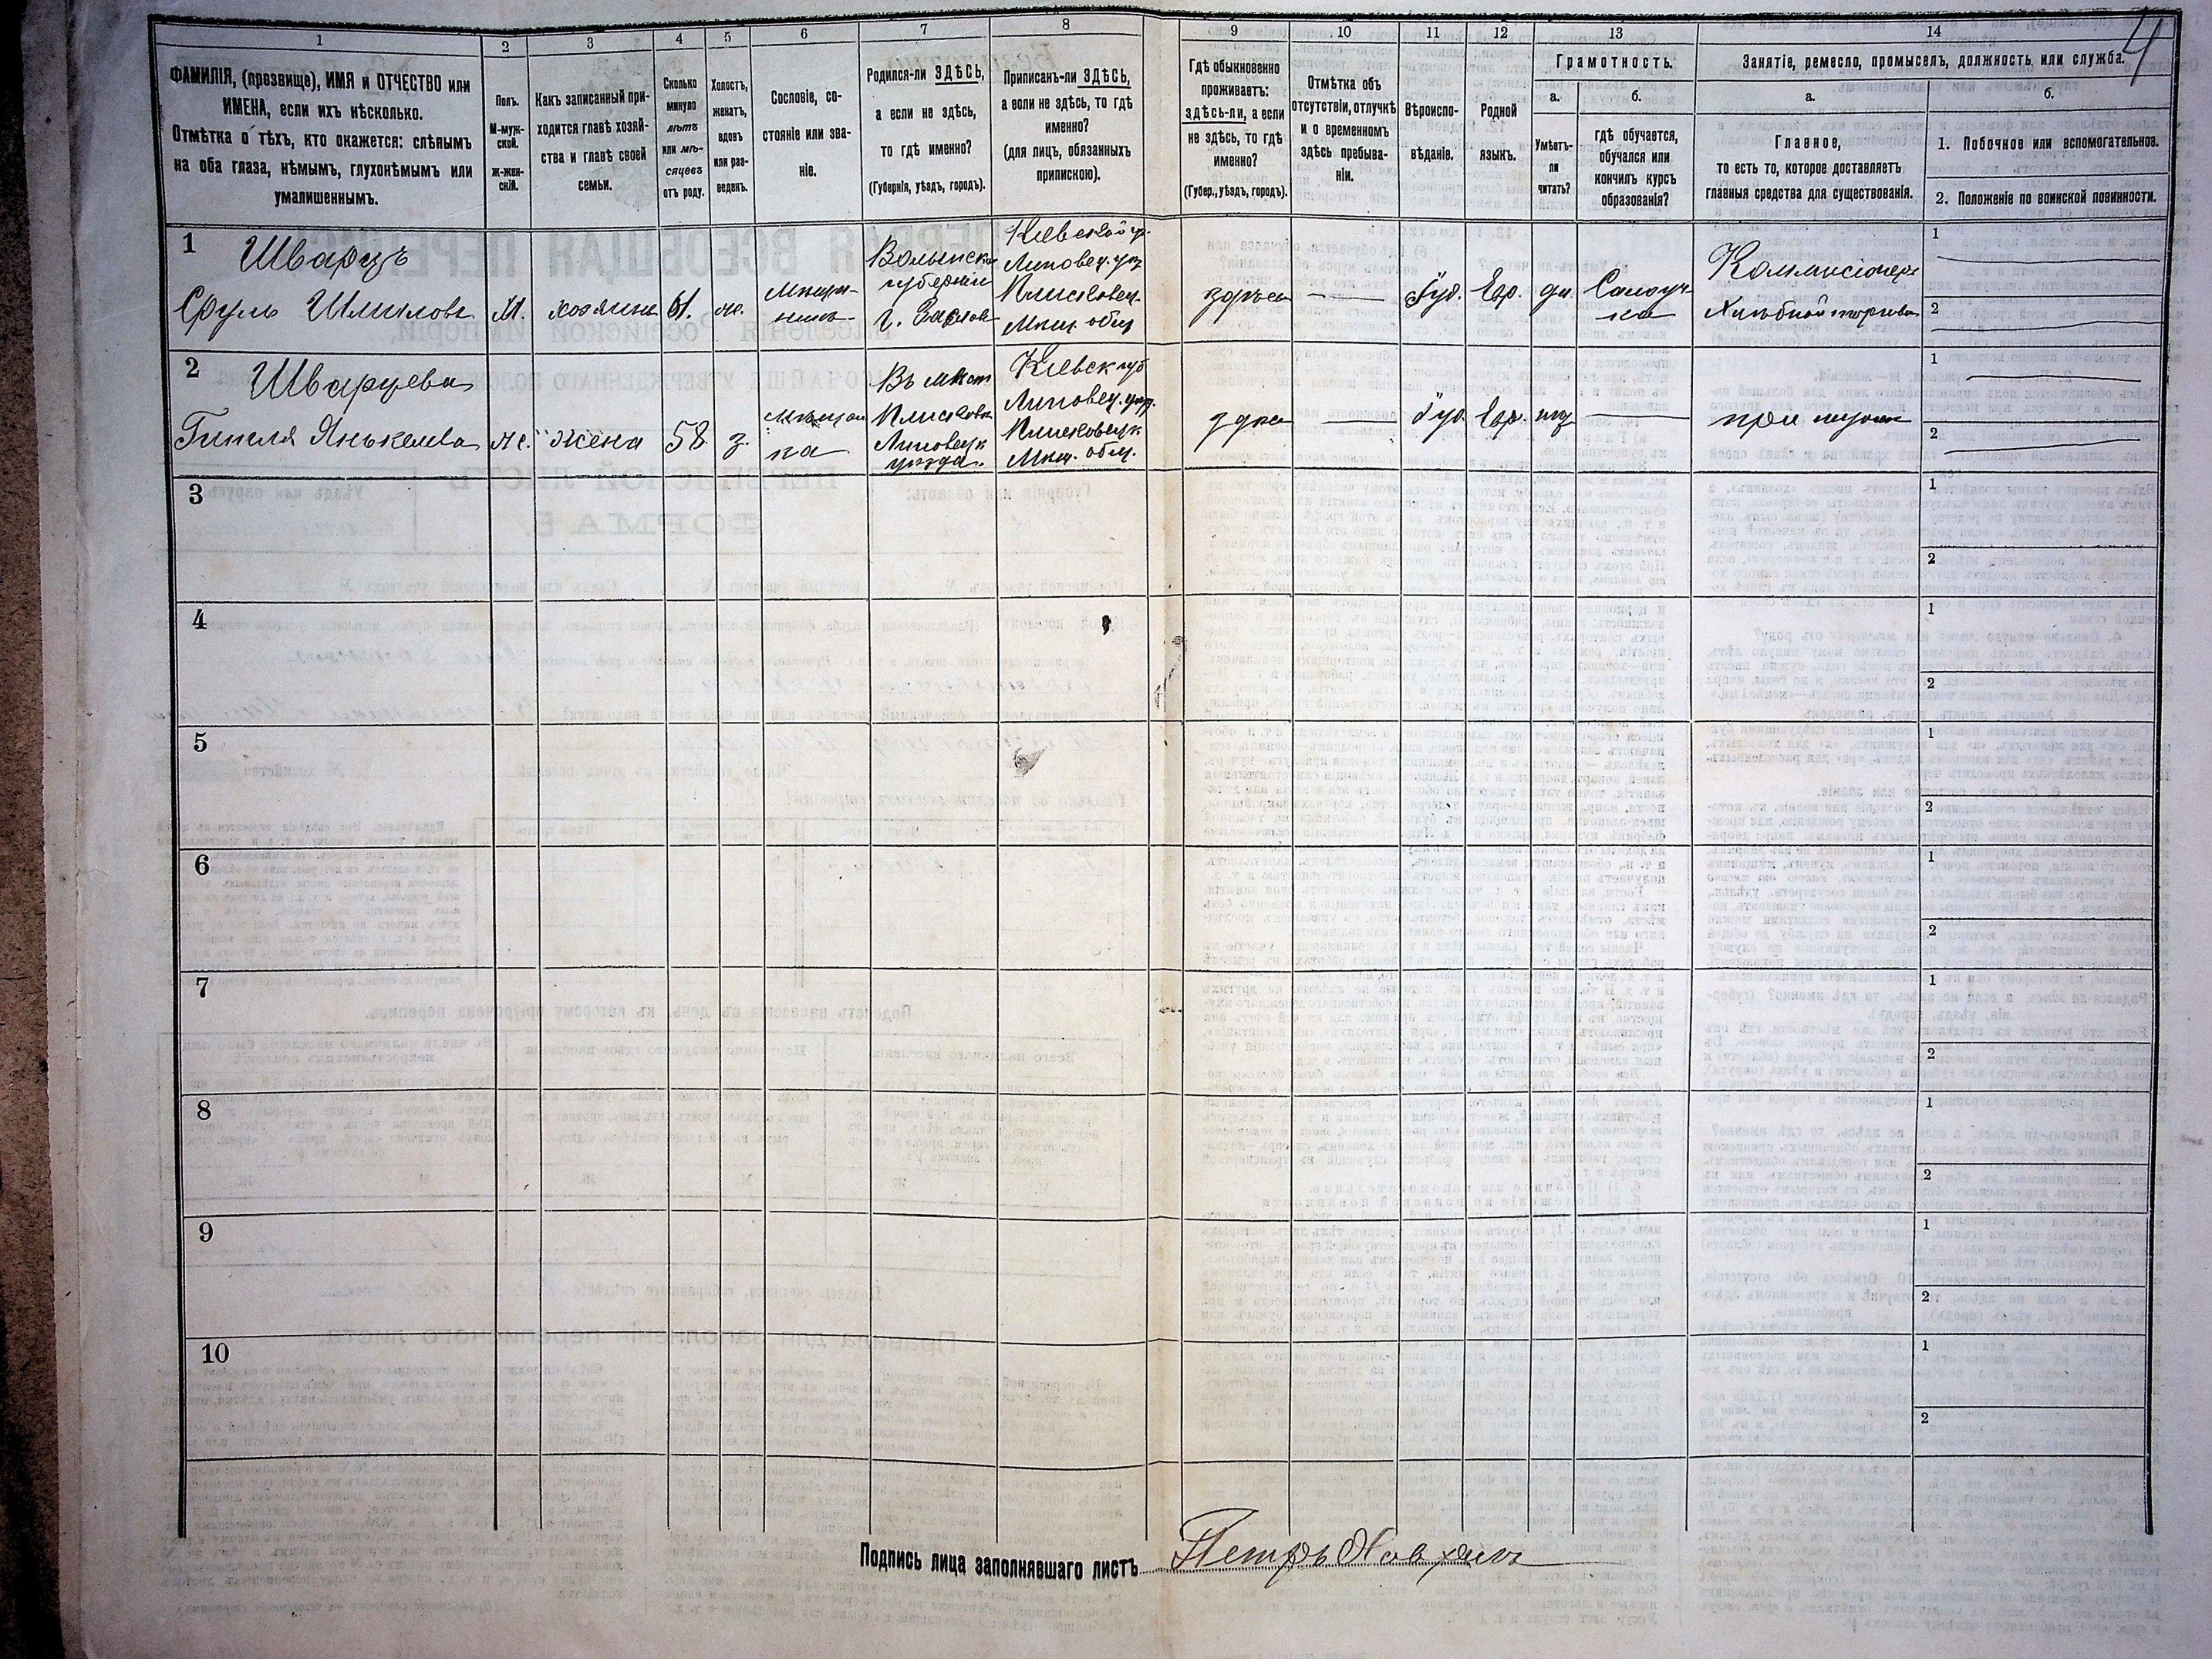 4
1
2
3
4
5
6
7
8
9
10
11
12
13
14
ФАМИЛІЯ, (прозвище), ИМЯ и ОТЧЕСТВО или
ИМЕНА, если ихъ нѣсколько.
Отмѣтка о тѣхъ, кто окажется: слѣпымъ
на оба глаза, нѣмымъ, глухонѣмымъ или
умалишеннымъ.
Полъ.
М-муж-
ской.
ж-жен-
скій.
Какъ записанный при-
ходится главѣ хозяй-
ства и главѣ своей
семьи.
Сколько
минуло
лѣтъ
или мѣ-
сяцевъ
отъ роду.
Холостъ,
женатъ,
вдовъ
или раз-
веденъ.
Сословіе, со-
стояніе или зва-
ніе.
Родился-ли ЗДѢСЬ,
а если не здѣсь,
то гдѣ именно?
(Губернія, уѣздъ, городъ).
Приписанъ-ли ЗДѢСЬ,
а если не здѣсь, то гдѣ
именно?
(для лицъ, обязанныхъ
припискою).
Гдѣ обыкновенно
проживаетъ:
здѣсь-ли, а если
не здѣсь, то гдѣ
именно?
(Губер., уѣздъ, городъ).
Отмѣтка объ
отсутствіи, отлучкѣ
и о временномъ
здѣсь пребыва-
ніи.
Вѣроиспо-
вѣданіе.
Родной
языкъ.
Грамотность.
а.
Умѣетъ-
ли
читать?
б.
гдѣ обучается,
обучался или
кончилъ курсъ
образованія?
Занятіе, ремесло, промыселъ, должность или служба.
а.
Главное,
то есть то, которое доставляетъ
главныя средства для существованія.
б.
1. Побочное или вспомогательное.
2. Положеніе по воинской повинности.
1
Шварцъ
Сруль Шмилов
М.
хозяинъ
61.
же.
Мѣща-
нинъ
Волынск
губерніи
г. Заслав
Кіевской г.
Липовец. уѣз
Плисковец.
Мѣщ. общ
здѣсь
Іуд.
Евр.
да.
Хлѣбной торговли
1
2
2
Шварцева
Янькелева
же.
жена
58
з.
Мѣщан
ка
Въ мѣст
Плисковѣ
Липовецк
уѣзда.
Кіевск губ
Липовец. уѣз.
Плисковецк
Мѣщ. общ.
здѣсь
Іуд.
Евр.
при мужѣ
1
2
3
1
2
4
1
2
5
1
2
6
1
2
7
1
2
8
1
2
9
1
2
10
1
2
Подпись лица заполнявшаго листъ
Петръ